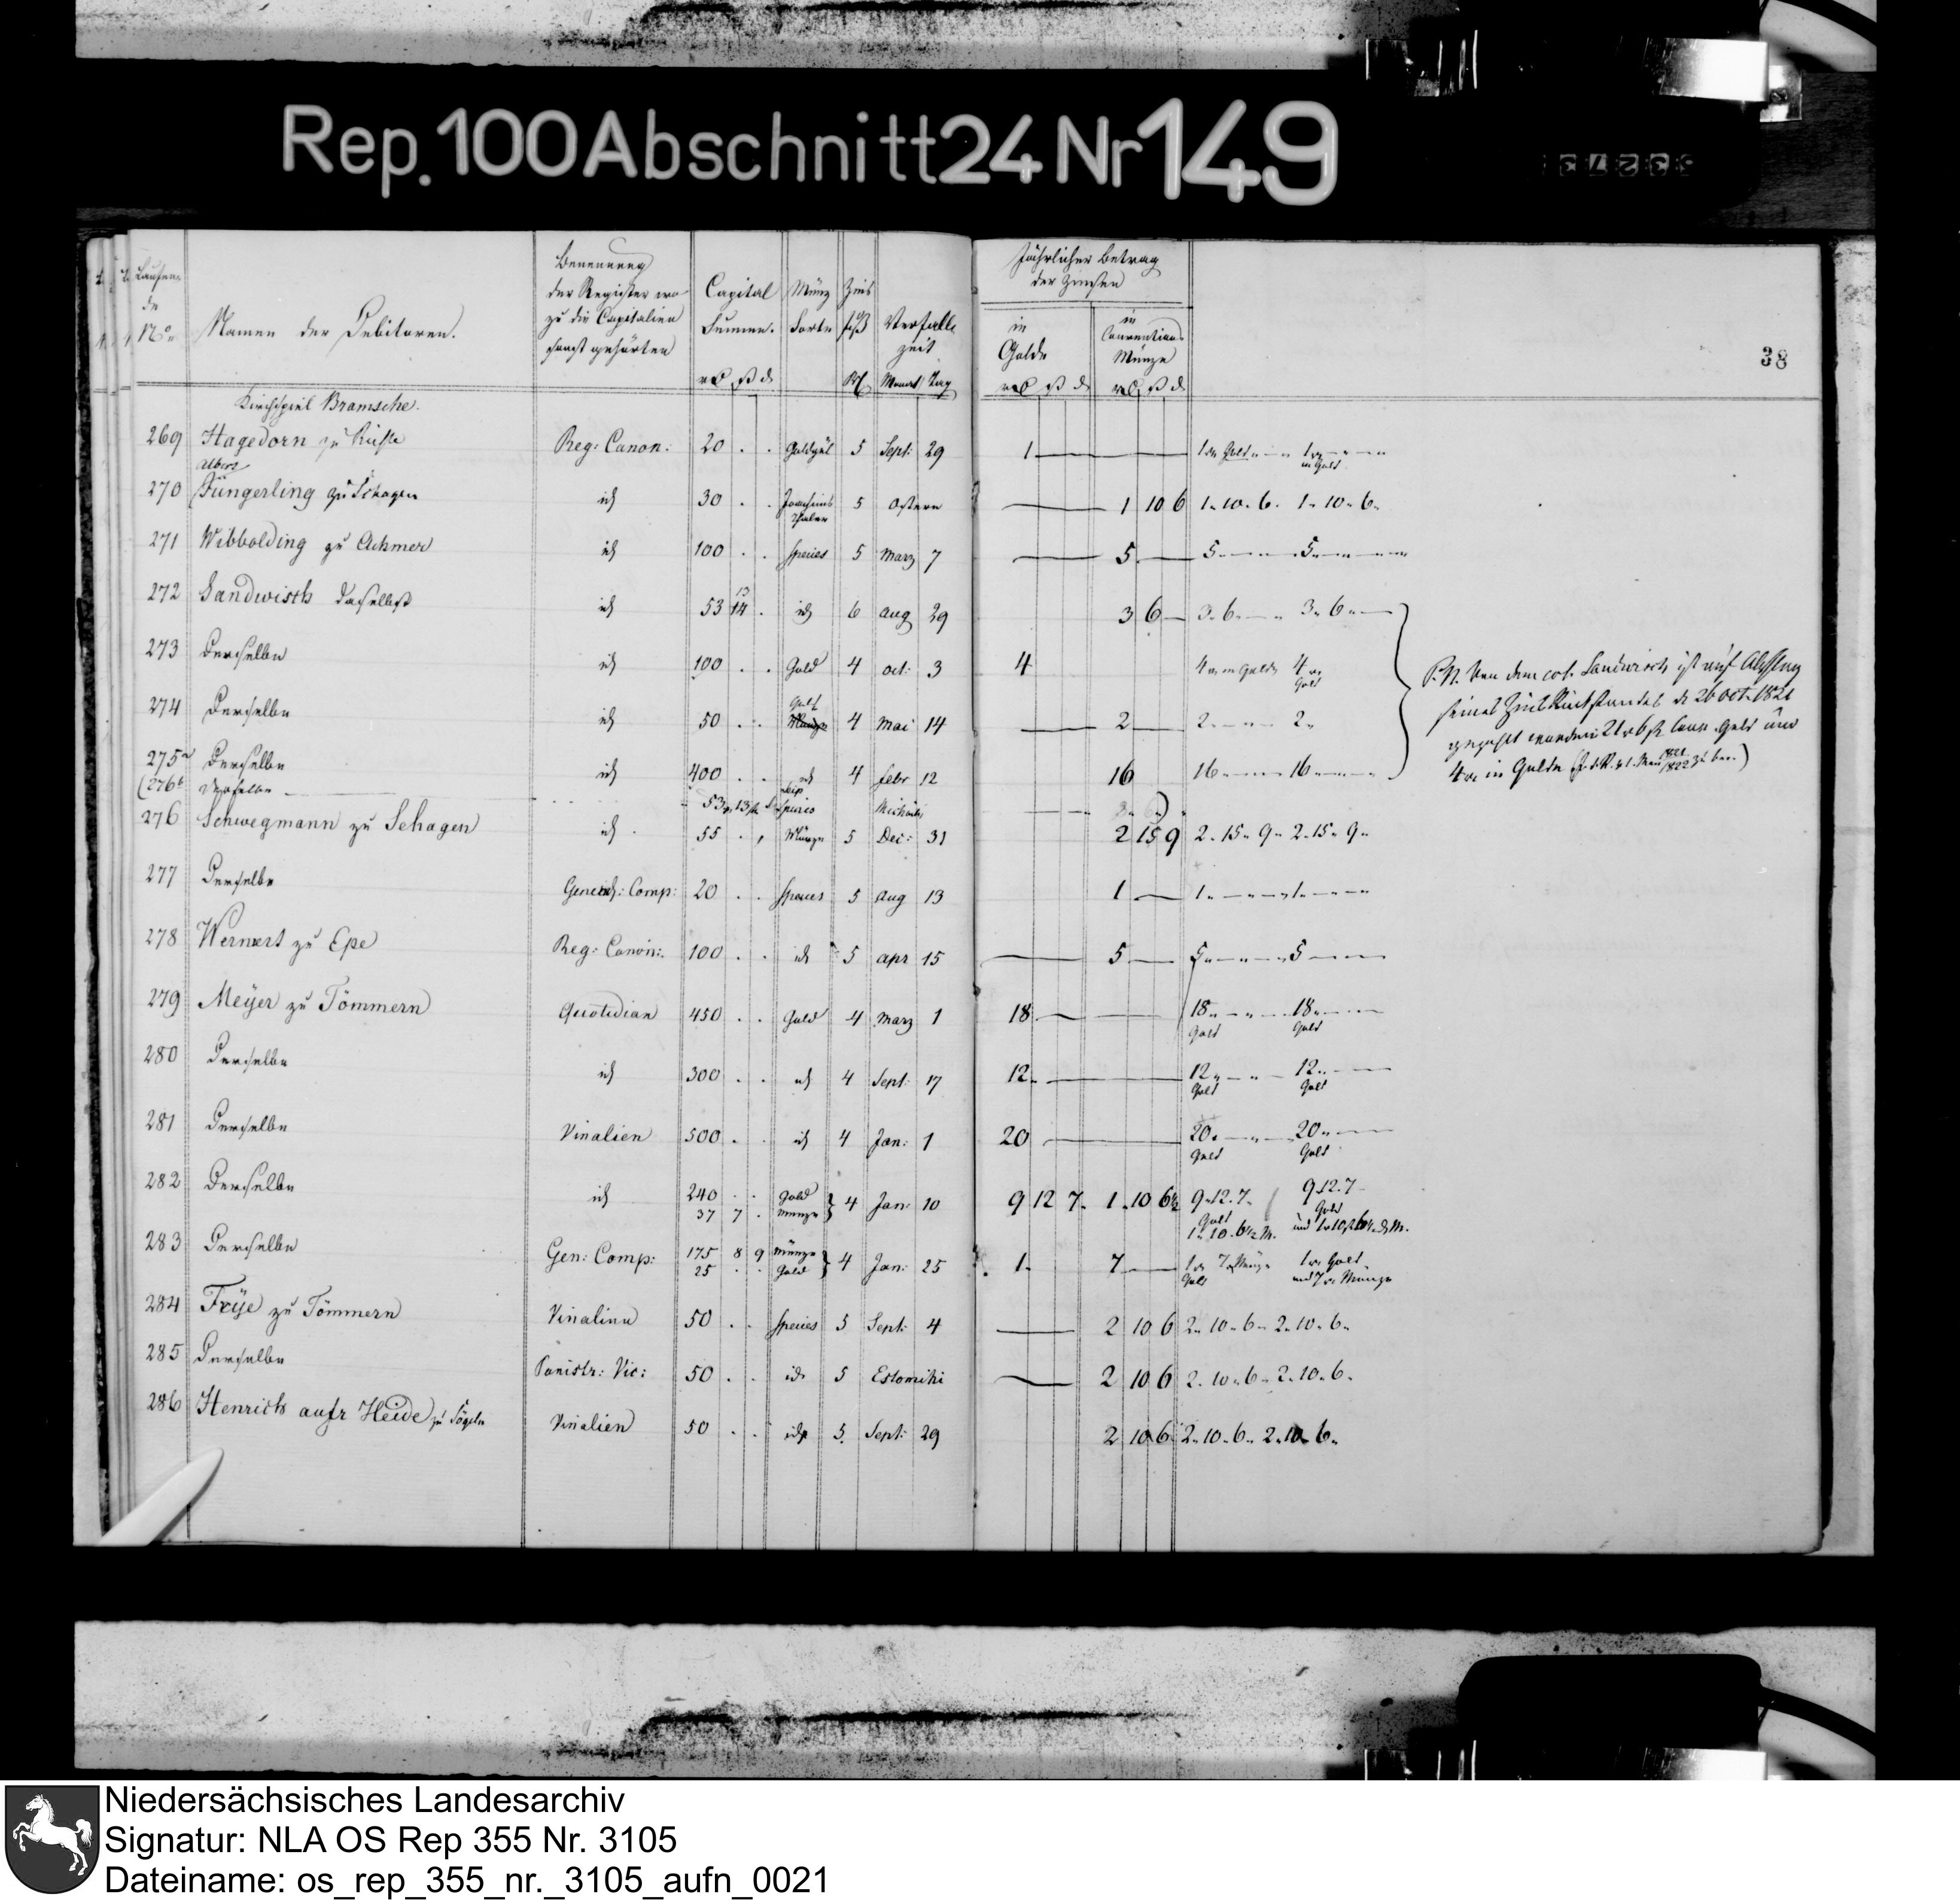 Rep. 100 Abschnitt 24 Nr 149
38
Laufen-
de
No.
Namen der Debitoren.
Benennung
der Register wo-
zu die Capitalien
sonst gehörten
Capital
Summe.
Münz
Sorte
Zins
fuß
Verfall-
zeit
Monat Tag
Jährlicher Betrag
der Zinsen
in
Golde
in
Conventions
Münze
Kirchspiel Bramsche.
269 Hagedorn zu Reg: Canon: 20 . . Goldgül 5 Sept: 29 1 1 Gold 1 in Gold
Albers
270 Jüngerling zu Schagen id 30 . . Joachims Thaler 5 Ostern 1 10 6 1. 10. 6. 1. 10. 6.
271 Wibbolding zu Achmer id 100 . . Species 5 Marz 7 5 5 5
272 Sandwisch daselbst id 53 14 13 . id 6 Aug 29 3 6 3. 6. 3. 6.
273 Derselbe id 100 . . Gold 4 Oct: 3 4 4 in Golde 4 Gold
274 Derselbe id 50 . . Gold Münze 4 Mai 14 2 2 2
275a Derselbe id 400 . . id 4 Febr 12 16 16 16
(276b Derselbe 53 13 Species Michaelis 2. 6)
P.N. Von dem Sandwisch ist auf Abschlag
seines Zins Rückstandes d 26 Oct. 1821
gezahlt worden Conv. Geld und
4 in Golde
276 Schwegmann zu Schagen id 55 . , Münze 5 Dec: 31 2 15 9 2. 15. 9. 2. 15. 9.
277 Derselbe Comp: 20 . . Species 5 Aug 13 1 1. 1.
278 Wernert zu Epe Reg: Canon: 100 . . id 5 Apr 15 5 5 5
279 Meÿer zu Tömmern Quotidian 450 . . Gold 4 Marz 1 18 18 Gold 18 Gold
280 Derselbe id 300 . . id 4 Sept: 17 12 12 Gold 12 Gold
281 Derselbe Vinalien 500 . . id 4 Jan: 1 20 20 Gold 20 Gold
282 Derselbe id 240 . . Gold 4 Jan: 10 9 12 7. 1. 10 6½ 9. 12. 7. Gold 9 12. 7 Gold
37 7 . Münze 1. 10. 6½ M. und 1 10 6½ M.
283 Derselbe Gen: Comp: 175 8 9 Münze 4 Jan: 25 1. 7 1 Gold 7 Münze 1 Gold
25 . . Gold und 7 Münze
284 Frÿe zu Tömmern Vinalien 50 . . Species 5 Sept: 4 2 10 6 2. 10. 6. 2. 10. 6.
285 Derselbe Panistr: Vic: 50 . . id 5 Estomihi 2 10 6 2. 10. 6. 2. 10. 6.
286 Henrich aufr Heide zu Sögeln Vinalien 50 . . id 5. Sept: 29 2 10 6 2. 10. 6. 2. 10. 6.
Niedersächsisches Landesarchiv
Signatur: NLA OS Rep 355 Nr. 3105
Dateiname: os_rep_355_nr._3105_aufn_0021